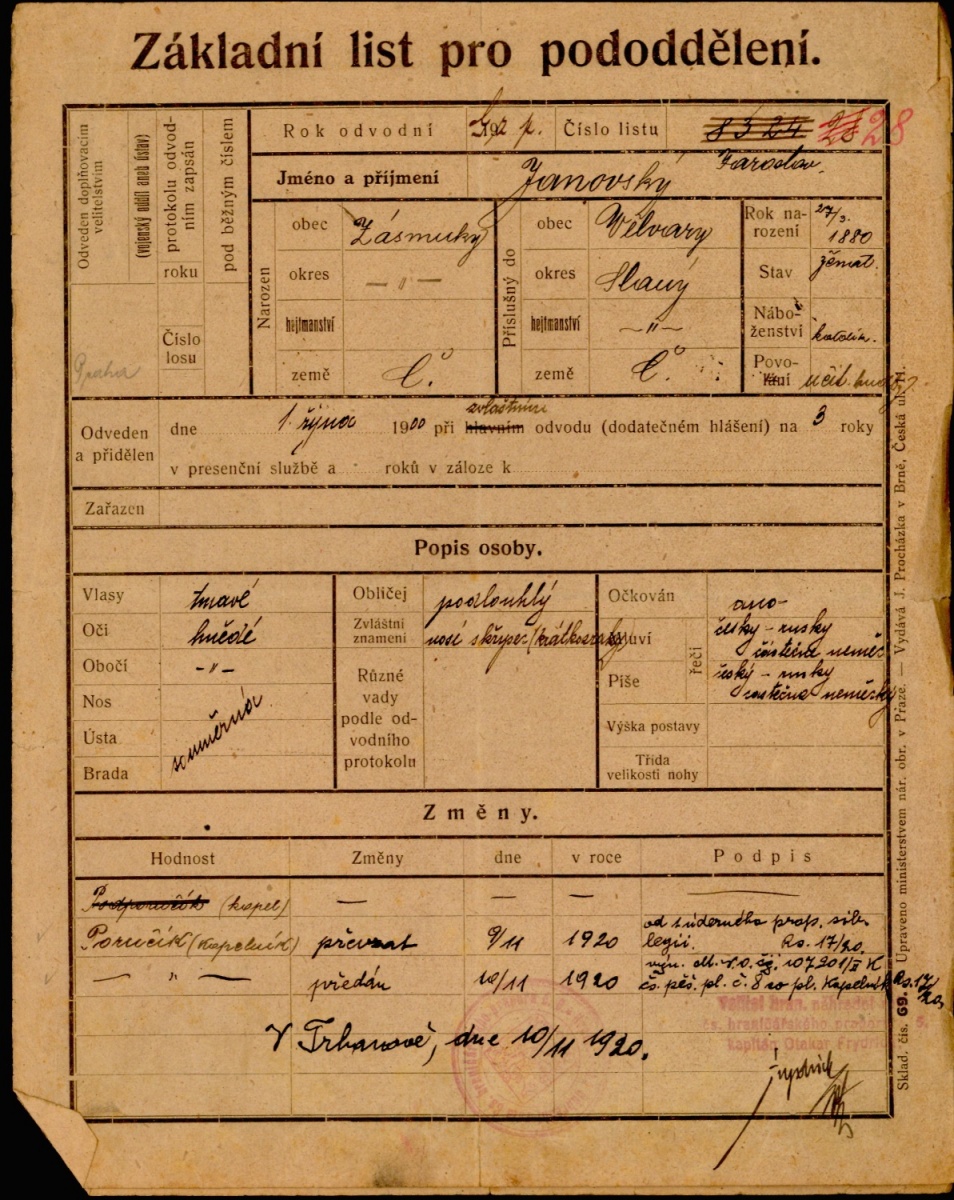 Základní list pro pododdělení.
Odveden doplňovacím velitelstvím
(vojenský oddíl aneb ústav)
protokolu odvodním zapsán
roku
Číslo losu
pod běžným číslem
Praha
Rok odvodní
Číslo listu 8524 28
Jméno a příjmení Janovský Jaroslav.
Narozen
obec Zásmuky
okres — " —
hejtmanství
země Č.
Příslušný do
obec Velvary
okres Slaný
hejtmanství — " —
země Č.
Rok narození 27/3. 1880
Stav ženat.
Náboženství katolík.
Povolání učit. hudby
Odveden a přidělen
dne 1. října 1900 při hlavním zvláštním odvodu (dodatečném hlášení) na 3 roky
v presenční službě a roků v záloze k
Zařazen
Popis osoby.
Vlasy tmavé
Oči hnědé
Obočí — " —
Nos
Ústa souměrná
Brada
Obličej podlouhlý
Zvláštní znamení nosí skřipec (krátkozraký)
Různé vady podle odvodního protokolu
Očkován ano
Mluví řeči česky - rusky
částečně německy
Píše český - rusky
částečně německy
Výška postavy
Třída velikosti nohy
Změny.
Hodnost Změny dne v roce Podpis
Podporučík (kapel) — — —
Poručík (kapelník) převzat 9/11 1920 od úderného prap. sib. legií. Ro. 17/20.
— " — předán 10/11 1920 čs. pěš. pl. č. 8 kapelník Ro. 17/20,
V Trhanově, dne 10/11 1920.
Velitel hran. náhradní
čs. hraničářského praporu č. 5.
kapitán Otakar Frydrich
Frydrich
Sklad. čís. 69. Upraveno ministerstvem nár. obr. v Praze. — Vydává J. Procházka v Brně, Česká ul.